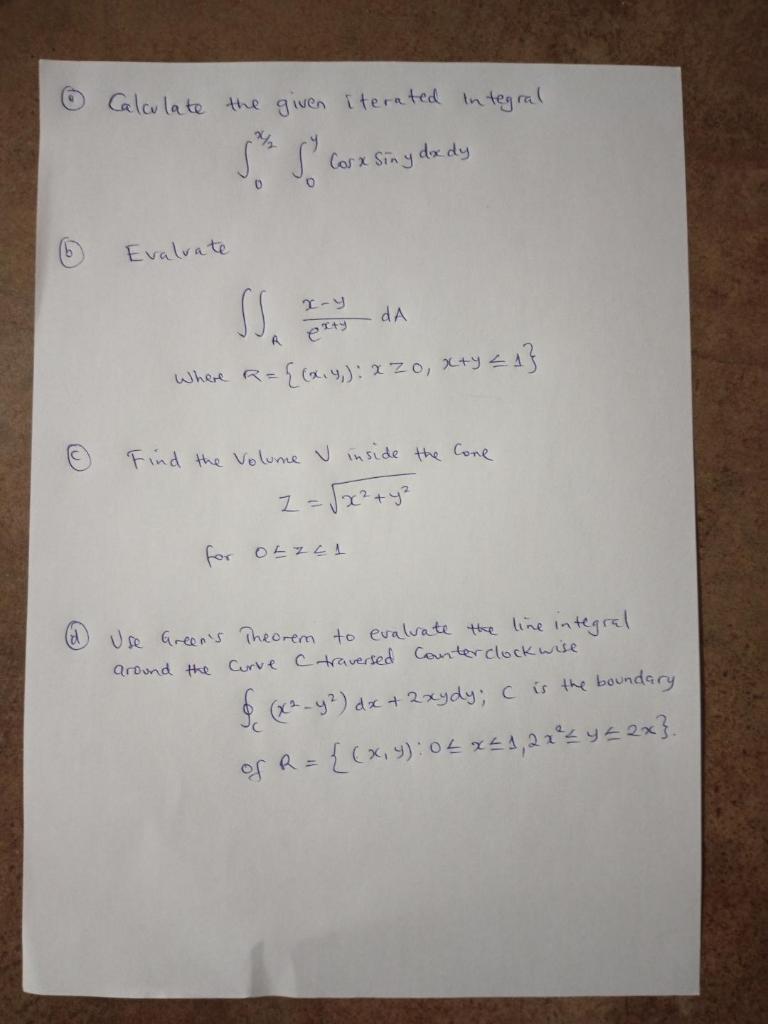 ⓐ Calculate the given iterated Integral
∫₀^{x/2} ∫₀^{y} Cosx Siny dxdy
ⓑ Evaluate
∬_R (x-y)/(e^{x+y}) dA
Where R = {(x,y,): x ≥ 0, x+y ≤ 1}
ⓒ Find the Volume V inside the Cone
Z = √(x²+y²)
for 0 ≤ z ≤ 1
ⓓ Use Green's Theorem to evaluate the line integral
around the Curve C traversed Counterclockwise
∮_C (x²-y²) dx + 2xydy; C is the boundary
of R = {(x,y): 0 ≤ x ≤ 1, 2x² ≤ y ≤ 2x}.